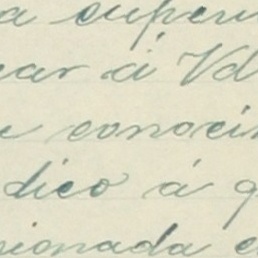 a superi
car á Vd
u conoci
dico á q
sionada e